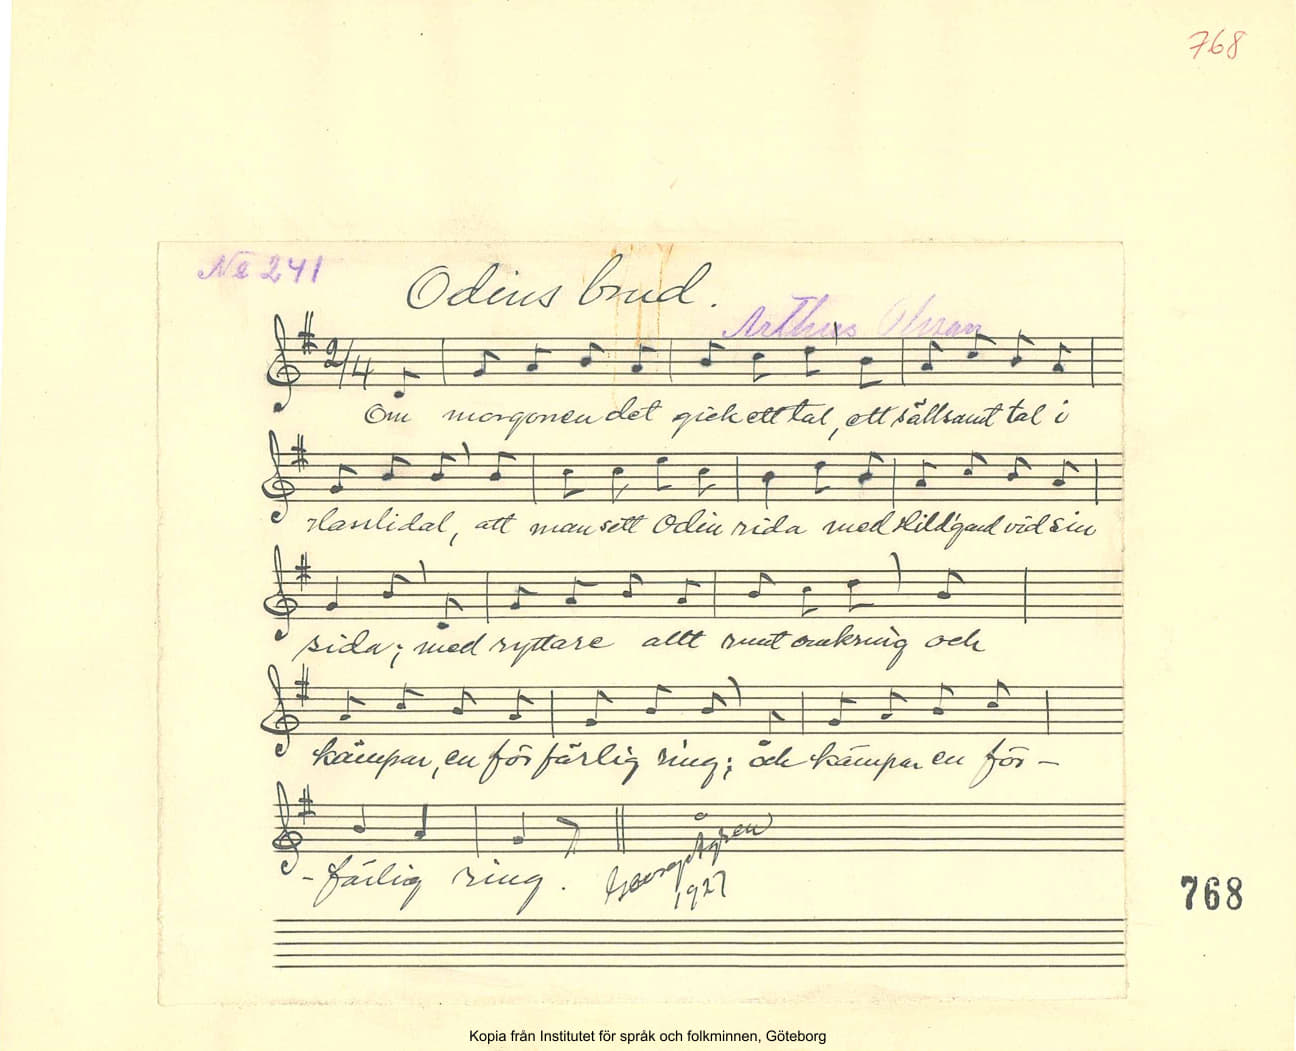 768
No 241
Odins brud.
Arthur Olsson
2/4
Om morgonen det gick ett tal, ett sällsamt tal i
, att man sett Odin rida med Hildgard vid sin
sida; med ryttare allt runt omkring och
kämpar, en förfärlig ring; och kämpar en för-
-färlig ring. George Ågren
1927
768
Kopia från Institutet för språk och folkminnen, Göteborg